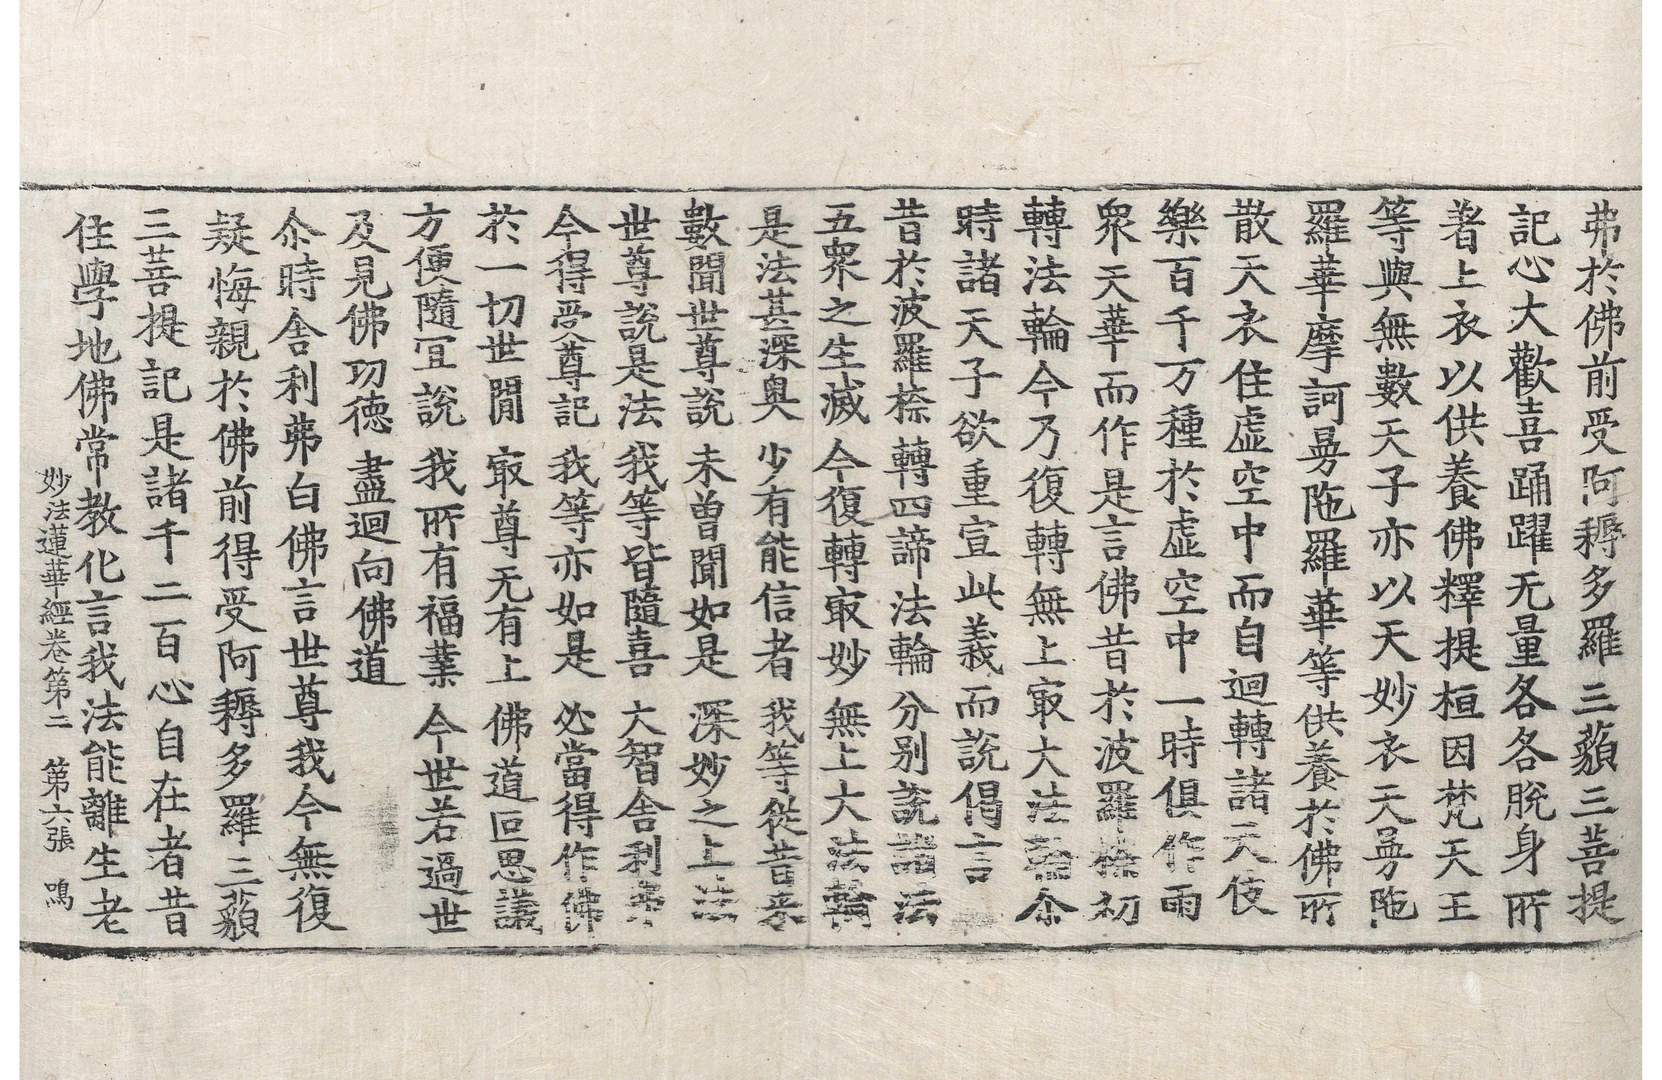 弗於佛前受阿耨多羅三藐三菩提
記心大歡喜踊躍无量各各脫身所
著上衣以供養佛釋提桓因梵天王
等與無數天子亦以天妙衣天曼陁
羅華摩訶曼陁羅華等供養於佛所
散天衣住虛空中而自迴轉諸天伎
樂百千万種於虛空中一時俱作雨
衆天華而作是言佛昔於波羅㮈初
轉法輪今乃復轉無上冣大法輪尒
時諸天子欲重宣此義而說偈言
昔於波羅㮈 轉四諦法輪 分別說諸法
五衆之生滅 今復轉冣妙 無上大法輪
是法甚深奧 少有能信者 我等從昔來
數聞世尊說 未曾聞如是 深妙之上法
世尊說是法 我等皆隨喜 大智舍利弗
今得受尊記 我等亦如是 必當得作佛
於一切世閒 冣尊无有上 佛道叵思議
方便隨冝說 我所有福業 今世若過世
及見佛功德 盡迴向佛道
尒時舍利弗白佛言世尊我今無復
疑悔親於佛前得受阿耨多羅三藐
三菩提記是諸千二百心自在者昔
住學地佛常教化言我法能離生老
妙法蓮華經卷第二 第六張 鳴